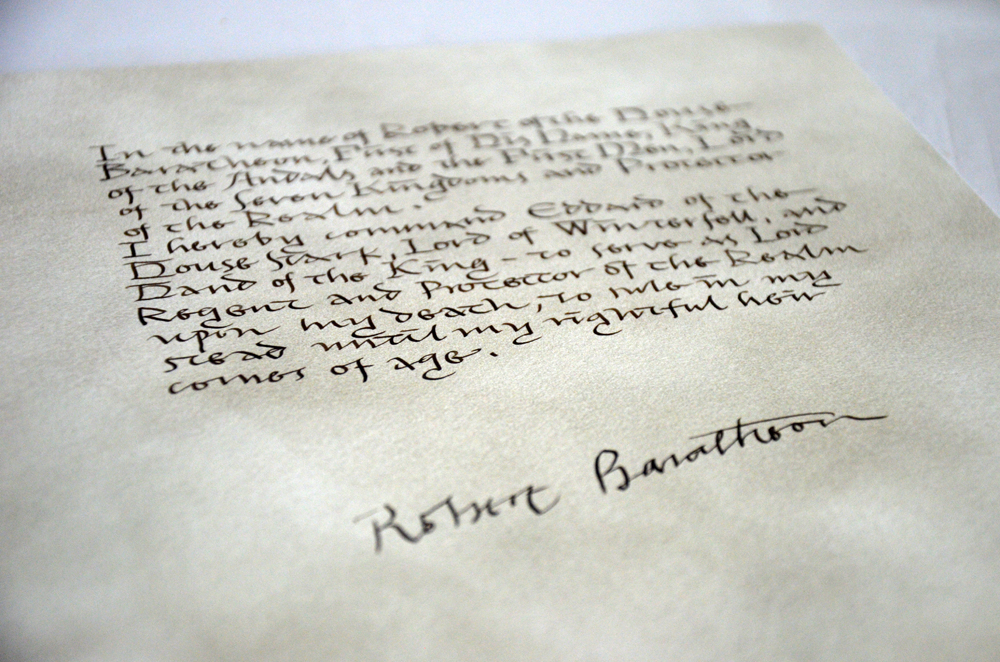 In the name of Robert of the House
Baratheon, First of His Name, King
of the Andals and the First Men, Lord
of the Seven Kingdoms and Protector
of the Realm.
I hereby command Eddard of the
House Stark, Lord of Winterfell, and
Hand of the King - to serve as Lord
Regent and Protector of the Realm
upon my death, to rule in my
stead until my rightful heir
comes of age.
Robert Baratheon